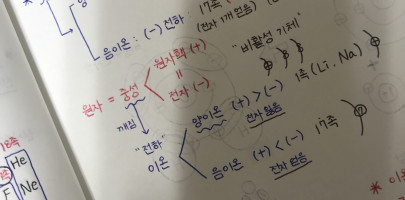 17족
음이온 : (-) 전하
(전자 1개 얻음)
"비활성 기체"
원자핵 (+)
=
원자 = 중성
전자 (-)
1족 (Li, Na)
깨짐
양이온 (+) > (-)
전자 잃음
"전하"
이온
음이온 (+) < (-)
전자 얻음
17족
18족
He
F
Ne
* 이온